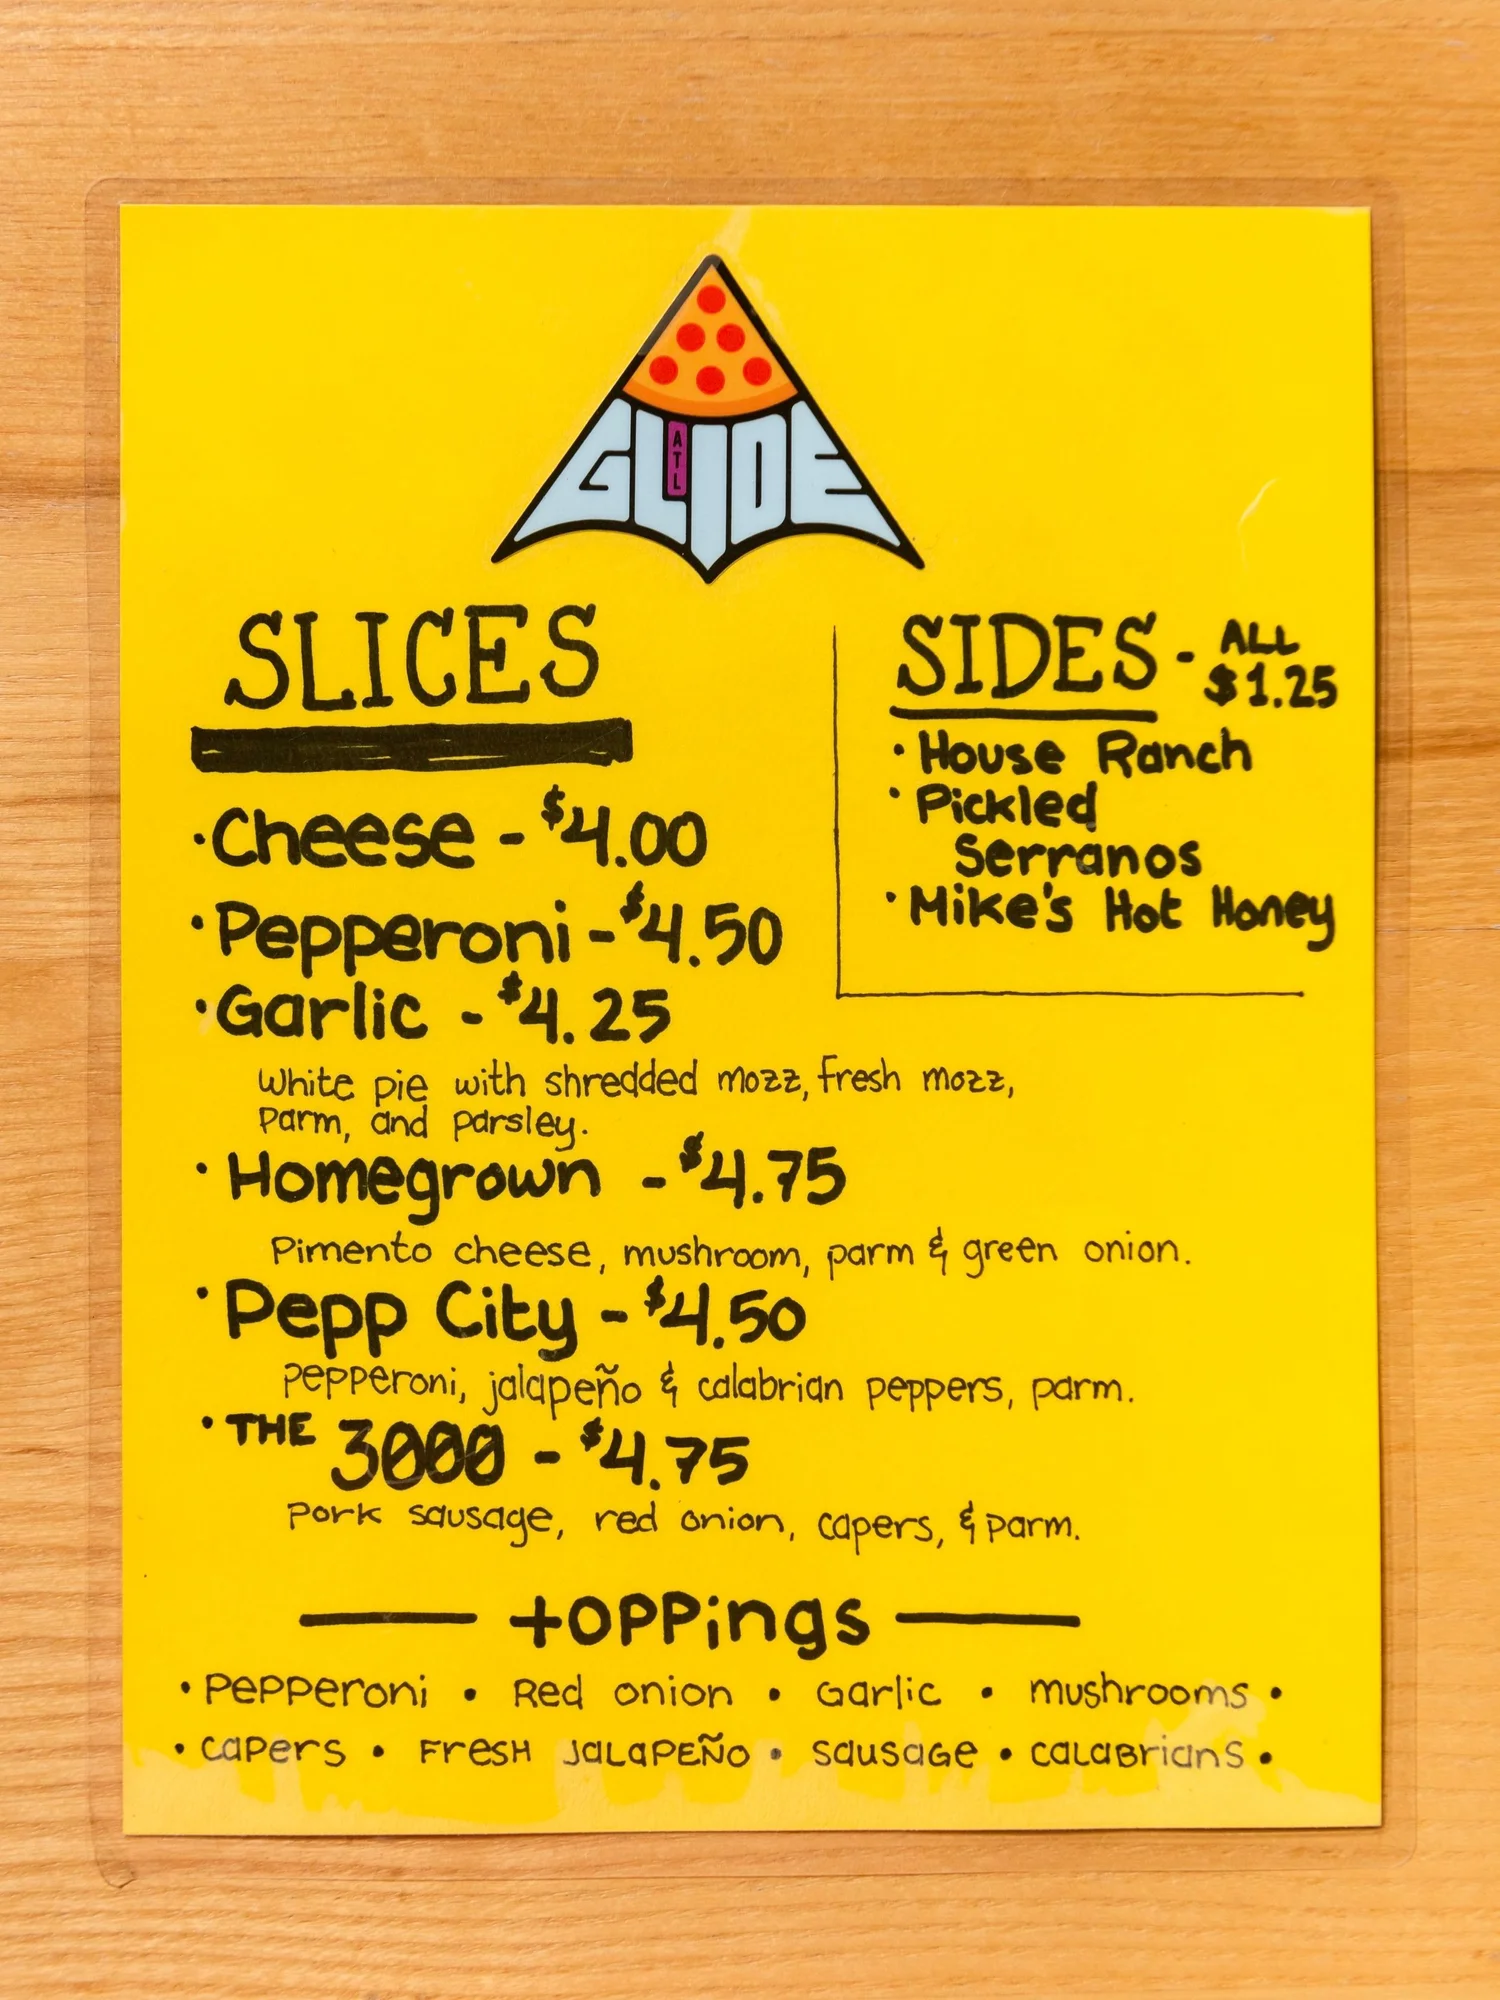 GLIDE
ATL
SLICES
·Cheese - $4.00
·Pepperoni - $4.50
·Garlic - $4.25
White pie with shredded mozz, fresh mozz,
parm, and parsley.
·Homegrown - $4.75
Pimento cheese, mushroom, parm & green onion.
·Pepp City - $4.50
Pepperoni, jalapeño & calabrian peppers, parm.
·THE 3000 - $4.75
Pork sausage, red onion, capers, & parm.
SIDES - ALL
$1.25
·House Ranch
·Pickled
Serranos
·Mike's Hot Honey
toppings
• Pepperoni • Red onion • Garlic • mushrooms •
• capers • FresH JaLaPEÑo • sausaGe • caLaBrians •